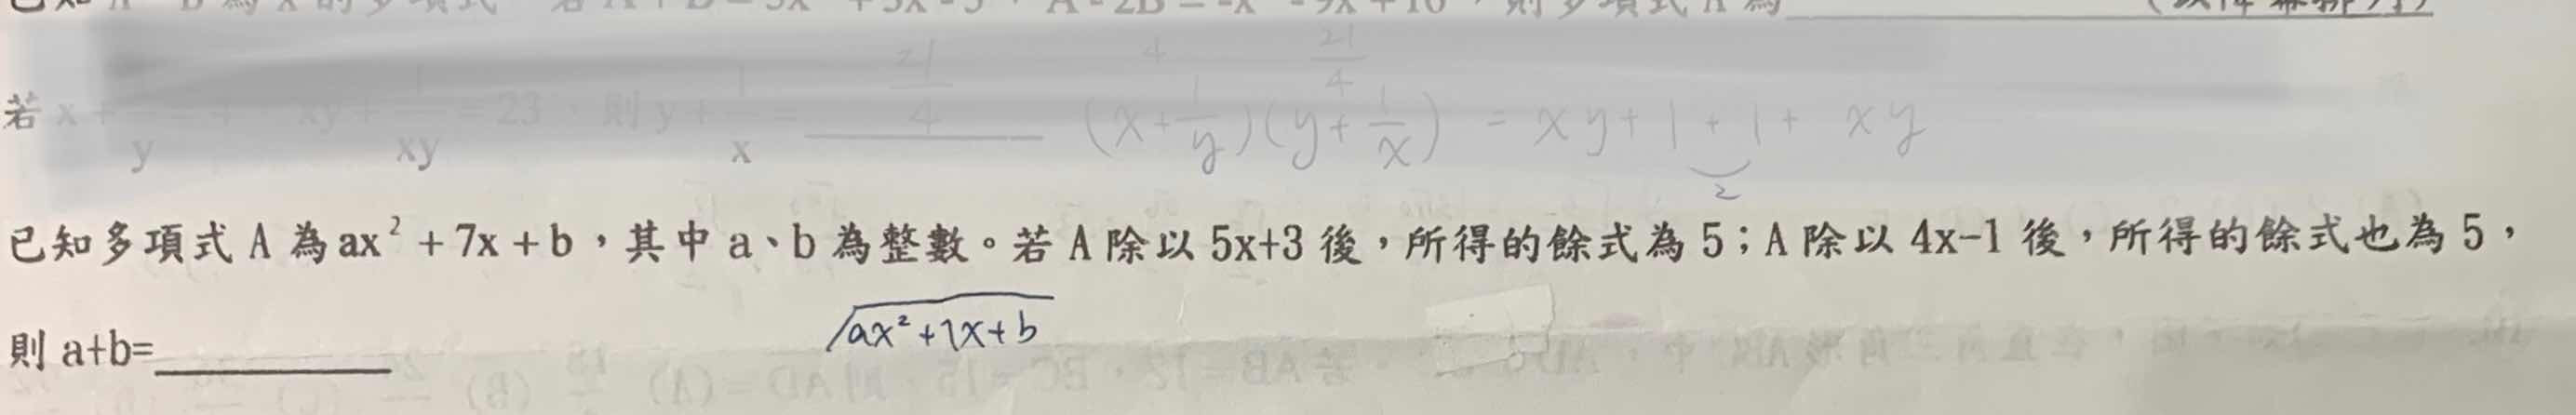 若 x + 1/y = 4, xy + 1/xy = 23, 則 y + 1/x = 21/4 (x+1/y)(y+1/x) = xy+1+1+xy
4 21/4
2
已知多項式 A 為 ax² + 7x + b，其中 a、b 為整數。若 A 除以 5x+3 後，所得的餘式為 5；A 除以 4x-1 後，所得的餘式也為 5，
則 a+b=
ax²+7x+b